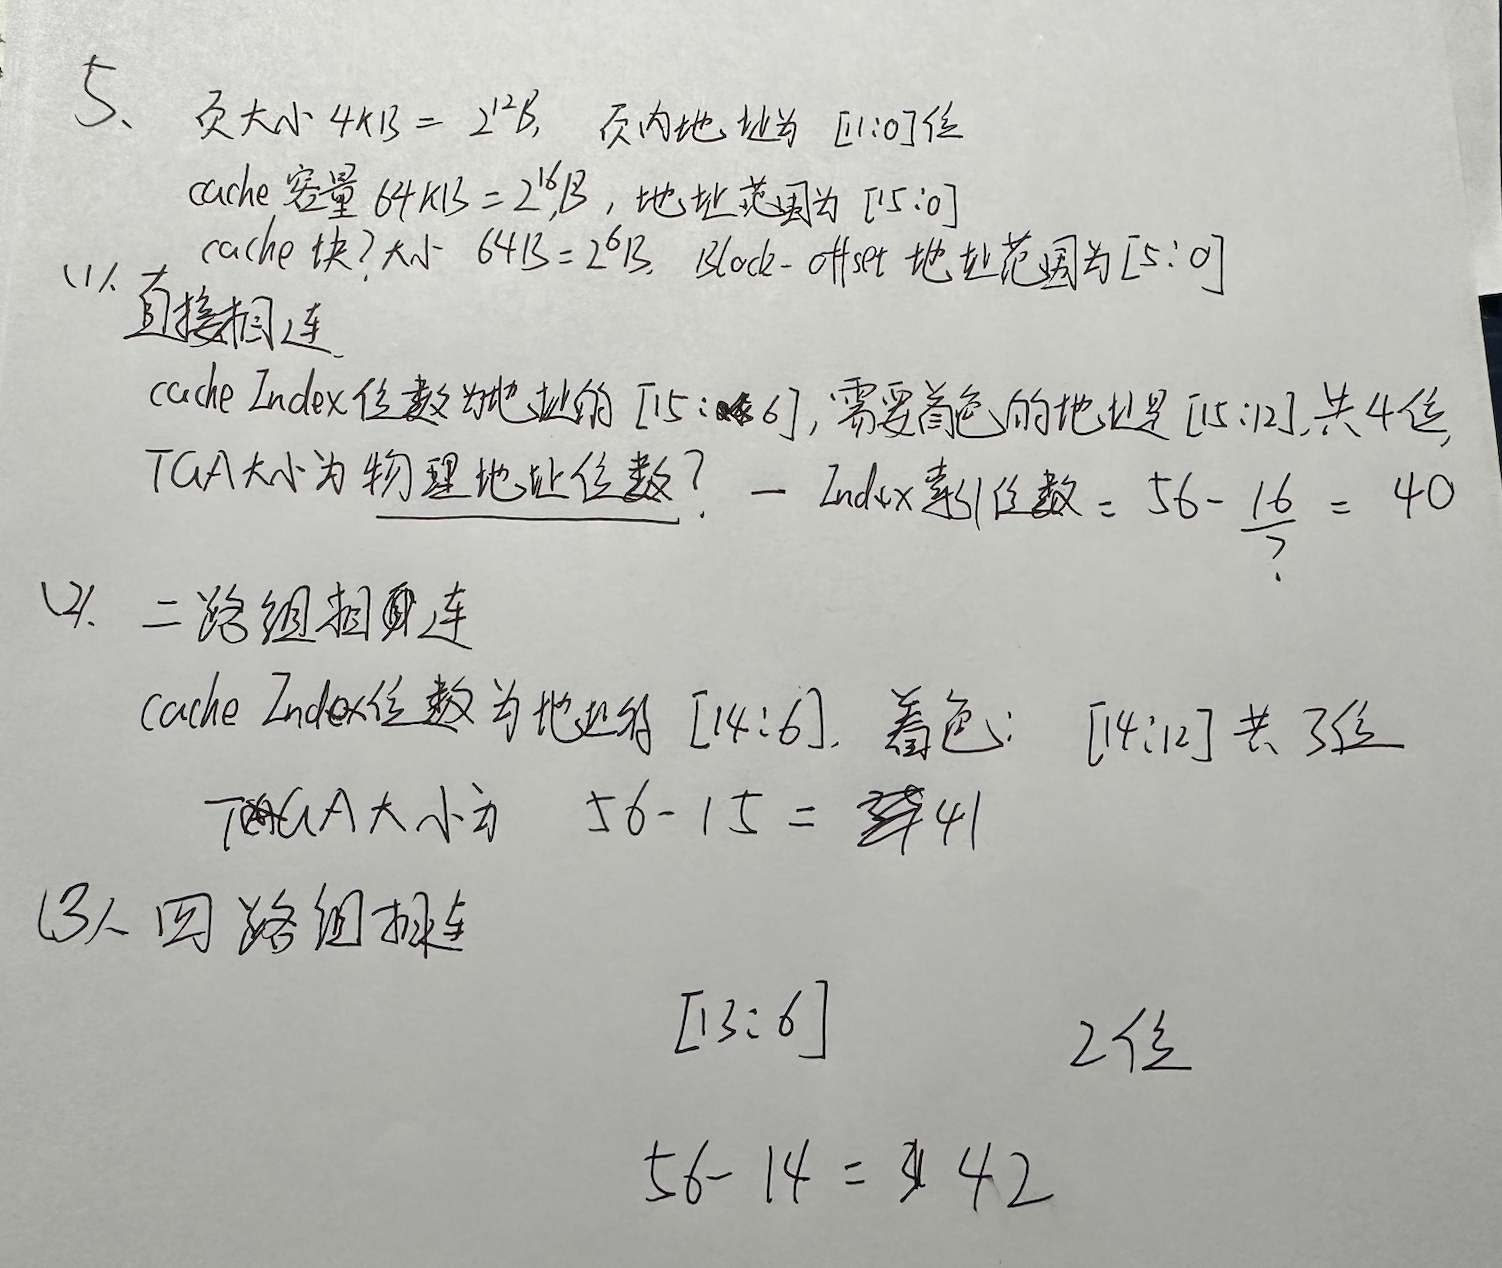 5、 页大小 4KB = 2¹²B, 页内地址为 [11:0]位
cache 容量 64KB = 2¹⁶B, 地址范围为 [15:0]
cache 块?大小 64B = 2⁶B. Block-offset 地址范围为[5:0]
(1). 直接相连
cache Index位数为地址的 [15:6], 需要着色的地址是[15:12],共4位,
TGA大小为物理地址位数? - Index索引位数 = 56 - 16 = 40
?
(2). 二路组相连
cache Index位数为地址的 [14:6]. 着色: [14:12] 共3位
TGA大小为 56-15 = 41
(3). 四路组相连
[13:6] 2位
56-14 = 42